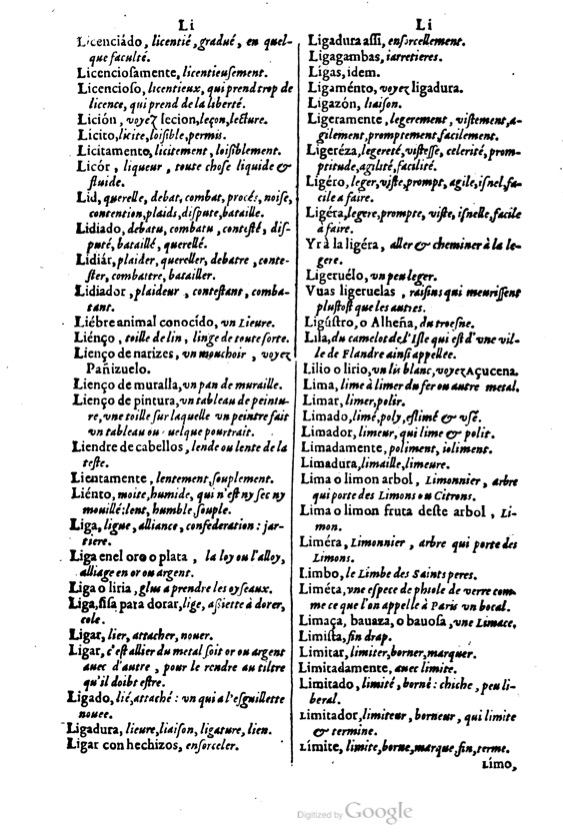 Li
Licenciádo, licentié, gradué, en quel-
que faculté.
Licenciosamente, licentieusement.
Licencioso, licentieux, qui prend trop de
licence, qui prend de la liberté.
Lición, voyez lecion, leçon, lecture.
Licito, licite, loisible, permis.
Licitamento, licitement, loisiblement.
Licór, liqueur, toute chose liquide &
fluide.
Lid, querelle, debat, combat, procés, noise,
contention, plaids, dispute, bataille.
Lidiado, debatu, combatu, contesté, dis-
puté, bataillé, querellé.
Lidiár, plaider, quereller, debatre, conte-
ster, combattre, batailler.
Lidiador, plaideur, contestant, comba-
tant.
Liébre animal conocído, vn Lieure.
Liénço, toille de lin, linge de toute sorte.
Lienço de narizes, vn mouchoir, voyez
Pañizuelo.
Lienço de muralla, vn pan de muraille.
Lienço de pintura, vn tableau de peintu-
re, vne toille sur laquelle vn peintre fait
vn tableau ou uelque pourtrait.
Liendre de cabellos, lende ou lente de la
teste.
Lientamente, lentement, souplement.
Liénto, moite, humide, qui n'est ny sec ny
mouillé: lent, humble, souple.
Liga, ligue, alliance, confederation: jar-
tiere.
Liga enel oro o plata, la loy ou l'alloy,
alliage en or ou argent.
Liga o liria, glus a prendre les oyseaux.
Liga, sisa para dorar, lige, assiette à dorer,
cole.
Ligar, lier, attacher, nouer.
Ligar, c'est allier du metal soit or ou argent
auec d'autre, pour le rendre au tiltre
qu'il doibt estre.
Ligado, lié, attaché: vn qui a l'esguillette
nouee.
Ligadura, lieure, liaison, ligature, lien.
Ligar con hechizos, ensorceler.
Li
Ligadura assi, ensorcellement.
Ligagambas, iarretieres.
Ligas, idem.
Ligaménto, voyez ligadura.
Ligazón, liaison.
Ligeramente, legerement, vistement, a-
gilement, promptement, facilement.
Ligeréza, legereté, vistesse, celerité, prom-
ptitude, agilité, facilité.
Ligéro, leger, viste, prompt, agile, isnel, fa-
cile a faire.
Ligéra, legere, prompte, viste, isnelle, facile
à faire.
Yr à la ligéra, aller & cheminer à la le-
gere.
Ligeruélo, vn peu leger.
Vuas ligeruelas, raisins qui meurissent
plustost que les autres.
Ligústro, o Alheña, du troesne.
Lila, du camelot de l'Isle qui est d'vne vil-
le de Flandre ainsi appellee.
Lilio o lirio, vn lis blanc, voyez Açucena.
Lima, lime à limer du fer ou autre metal.
Limar, limer, polir.
Limado, limé, poly, estimé & vsé.
Limador, limeur, qui lime & polit.
Limadamente, poliment, ioliment.
Limadura, limaille, limeure.
Lima o limon arbol, Limonnier, arbre
qui porte des Limons ou Citrons.
Lima o limon fruta deste arbol, Li-
mon.
Liméra, Limonnier, arbre qui porte des
Limons.
Limbo, le Limbe des Saints peres.
Liméta, vne espece de phiole de verre com
me ce que l'on appelle à Paris vn bocal.
Limaça, bauaza, o bauosa, vne Limace.
Limista, fin drap.
Limitar, limiter, borner, marquer.
Limitadamente, auec limite.
Limitado, limité, borné: chiche, peu li-
beral.
Limitador, limiteur, borneur, qui limite
& termine.
Límite, limite, borne, marque, fin, terme.
Límo,
Digitized by Google